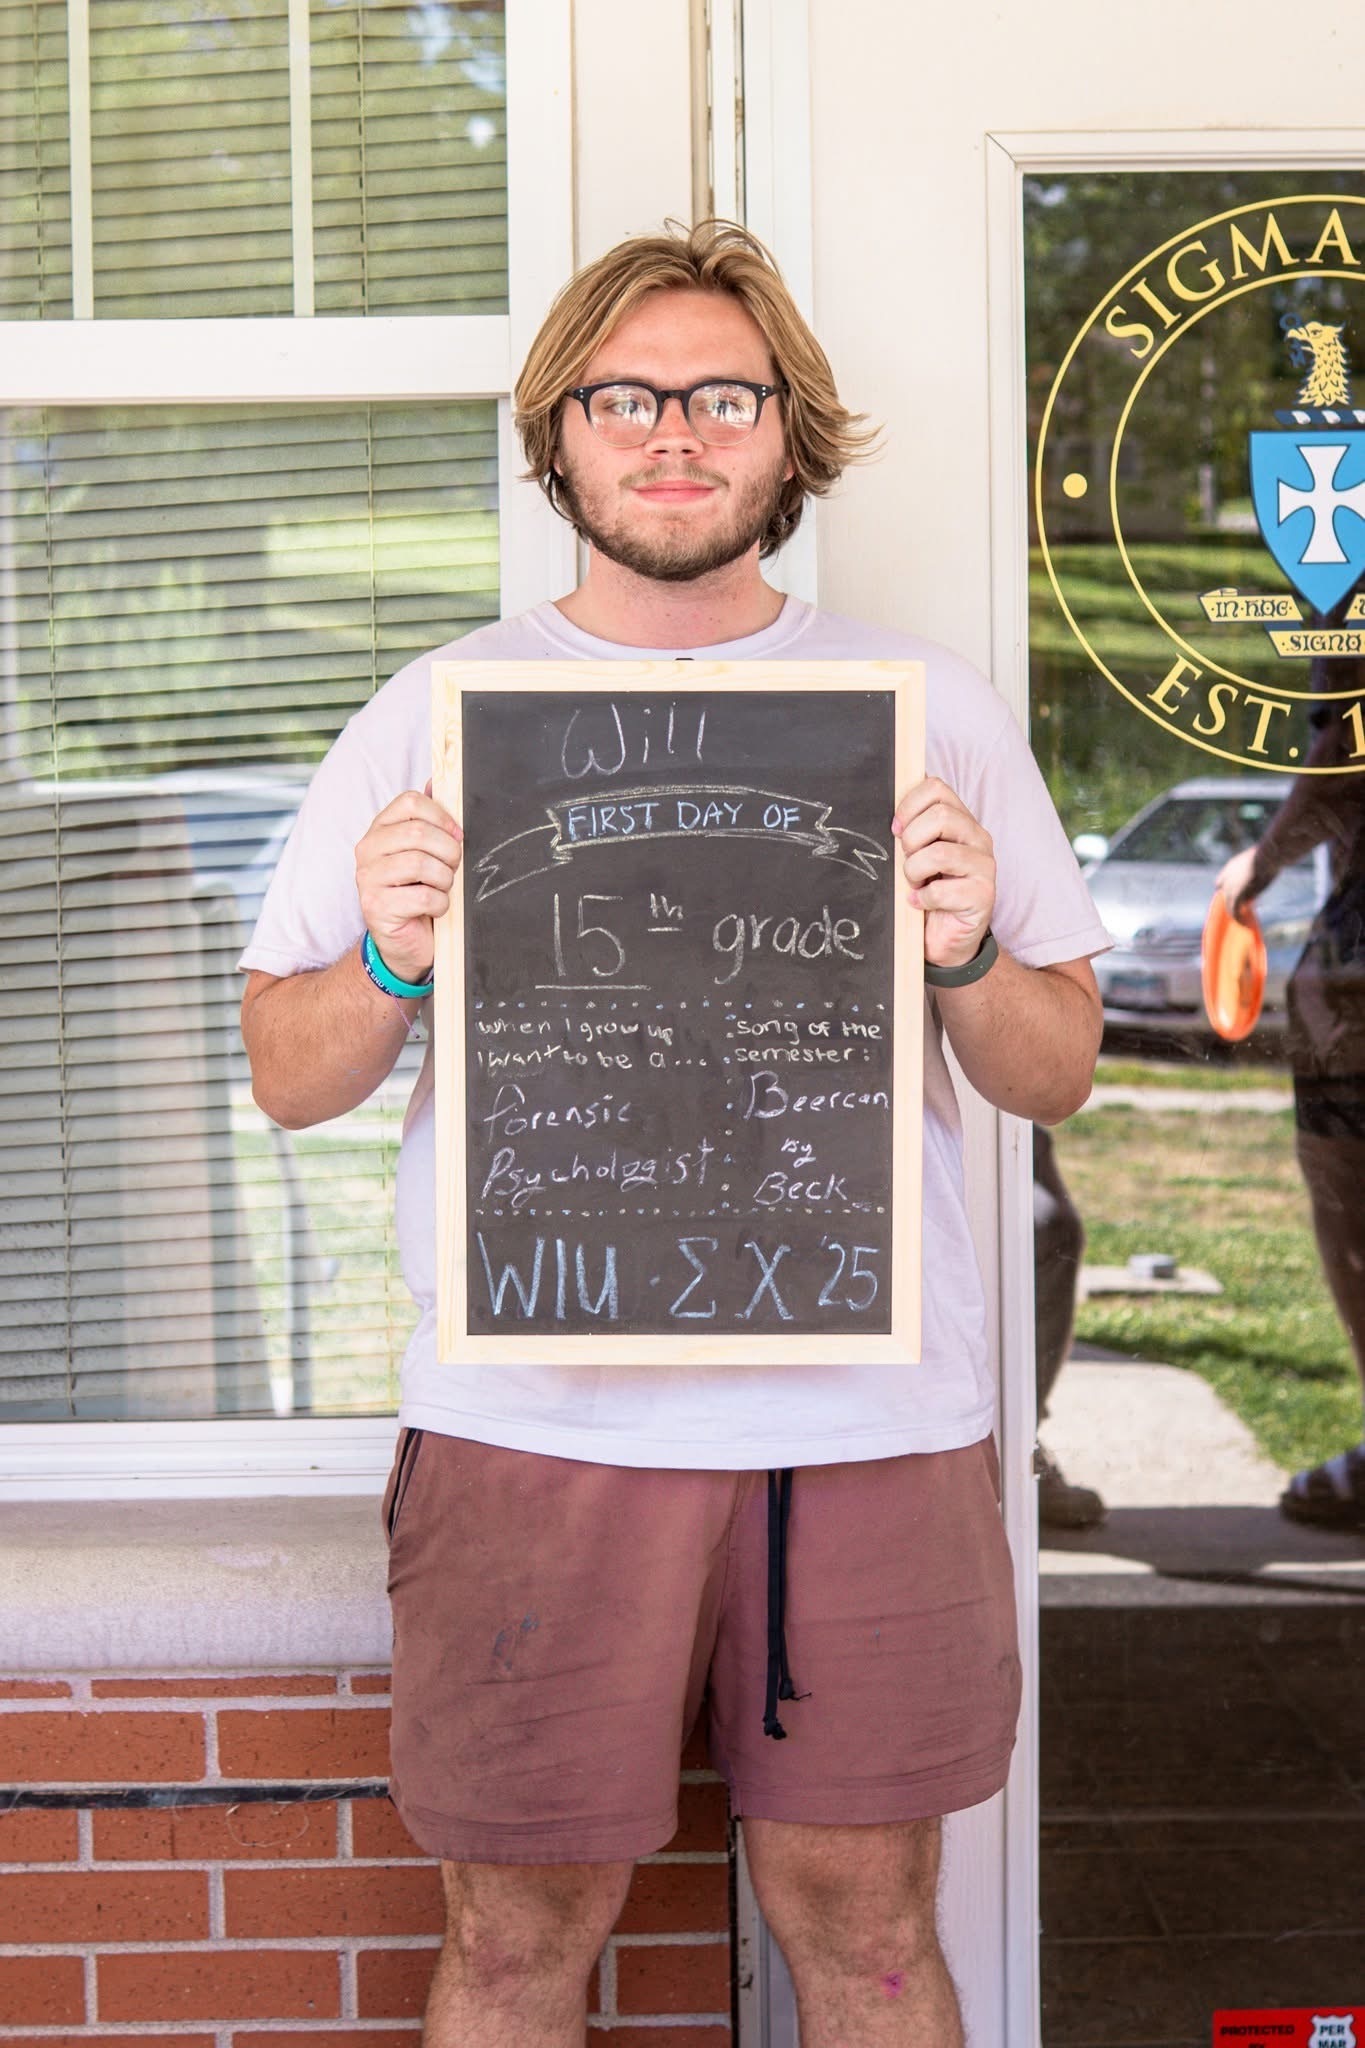 Will
FIRST DAY OF
15th grade
when I grow up
I want to be a...
Forensic
Psychologist
song of the
semester:
Beercan
by
Beck
WIU · Σ Χ '25
SIGMA
IN·HOC
SIGNO
EST. 1
PROTECTED
PER
MAR